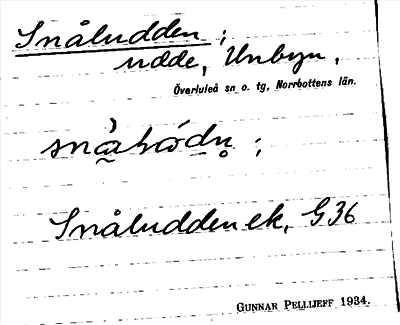 Snåludden ;
udde, Unbyn,
Överluleå sn o. tg, Norrbottens län.
Snåludden ek. G36
GUNNAR PELLIJEFF 1934.